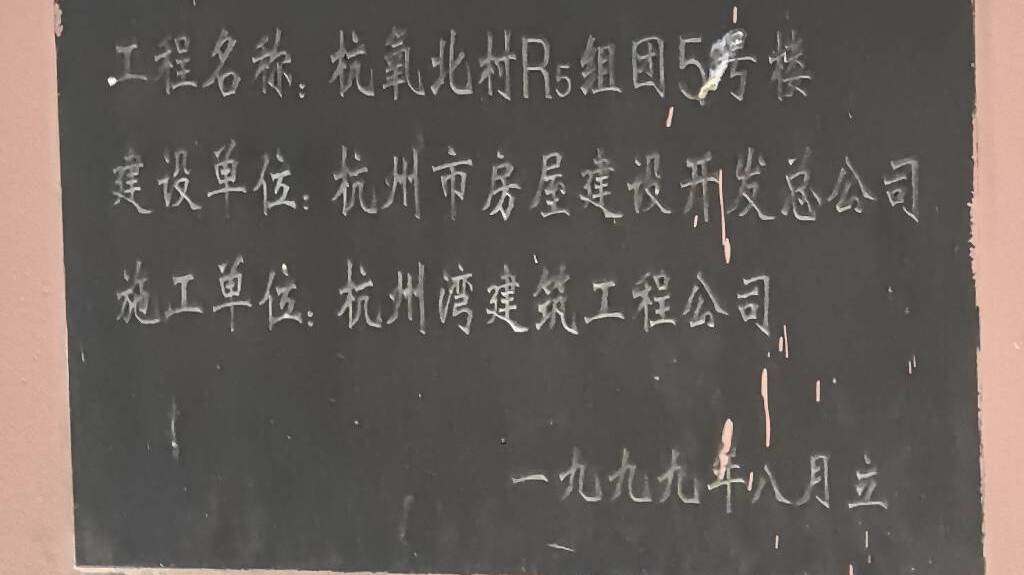 工程名称:杭氧北村R5组团5号楼
建设单位:杭州市房屋建设开发总公司
施工单位:杭州湾建筑工程公司
一九九九年八月立